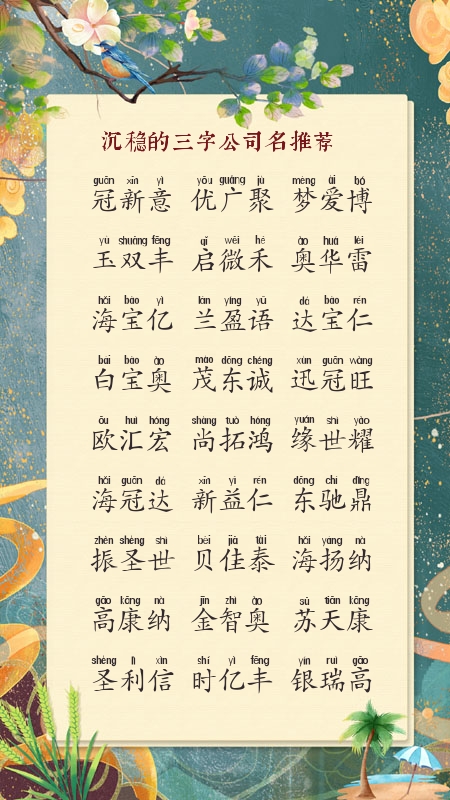 沉稳的三字公司名推荐
guān xīn yì yōu guǎng jù mèng ài bó
冠新意 优广聚 梦爱博
yù shuāng fēng qǐ wēi hé ào huá léi
玉双丰 启微禾 奥华雷
hǎi bǎo yì lán yíng yǔ dá bǎo rén
海宝亿 兰盈语 达宝仁
bái bǎo ào mào dōng chéng xùn guān wàng
白宝奥 茂东诚 迅冠旺
ōu huì hóng shàng tuò hóng yuán shì yào
欧汇宏 尚拓鸿 缘世耀
hǎi guān dá xīn yì rén dōng chí dǐng
海冠达 新益仁 东驰鼎
zhèn shèng shì bèi jiā tài hǎi yáng nà
振圣世 贝佳泰 海扬纳
gāo kāng nà jīn zhì ào sū tiān kāng
高康纳 金智奥 苏天康
shèng lì xìn shí yì fēng yín ruì gāo
圣利信 时亿丰 银瑞高